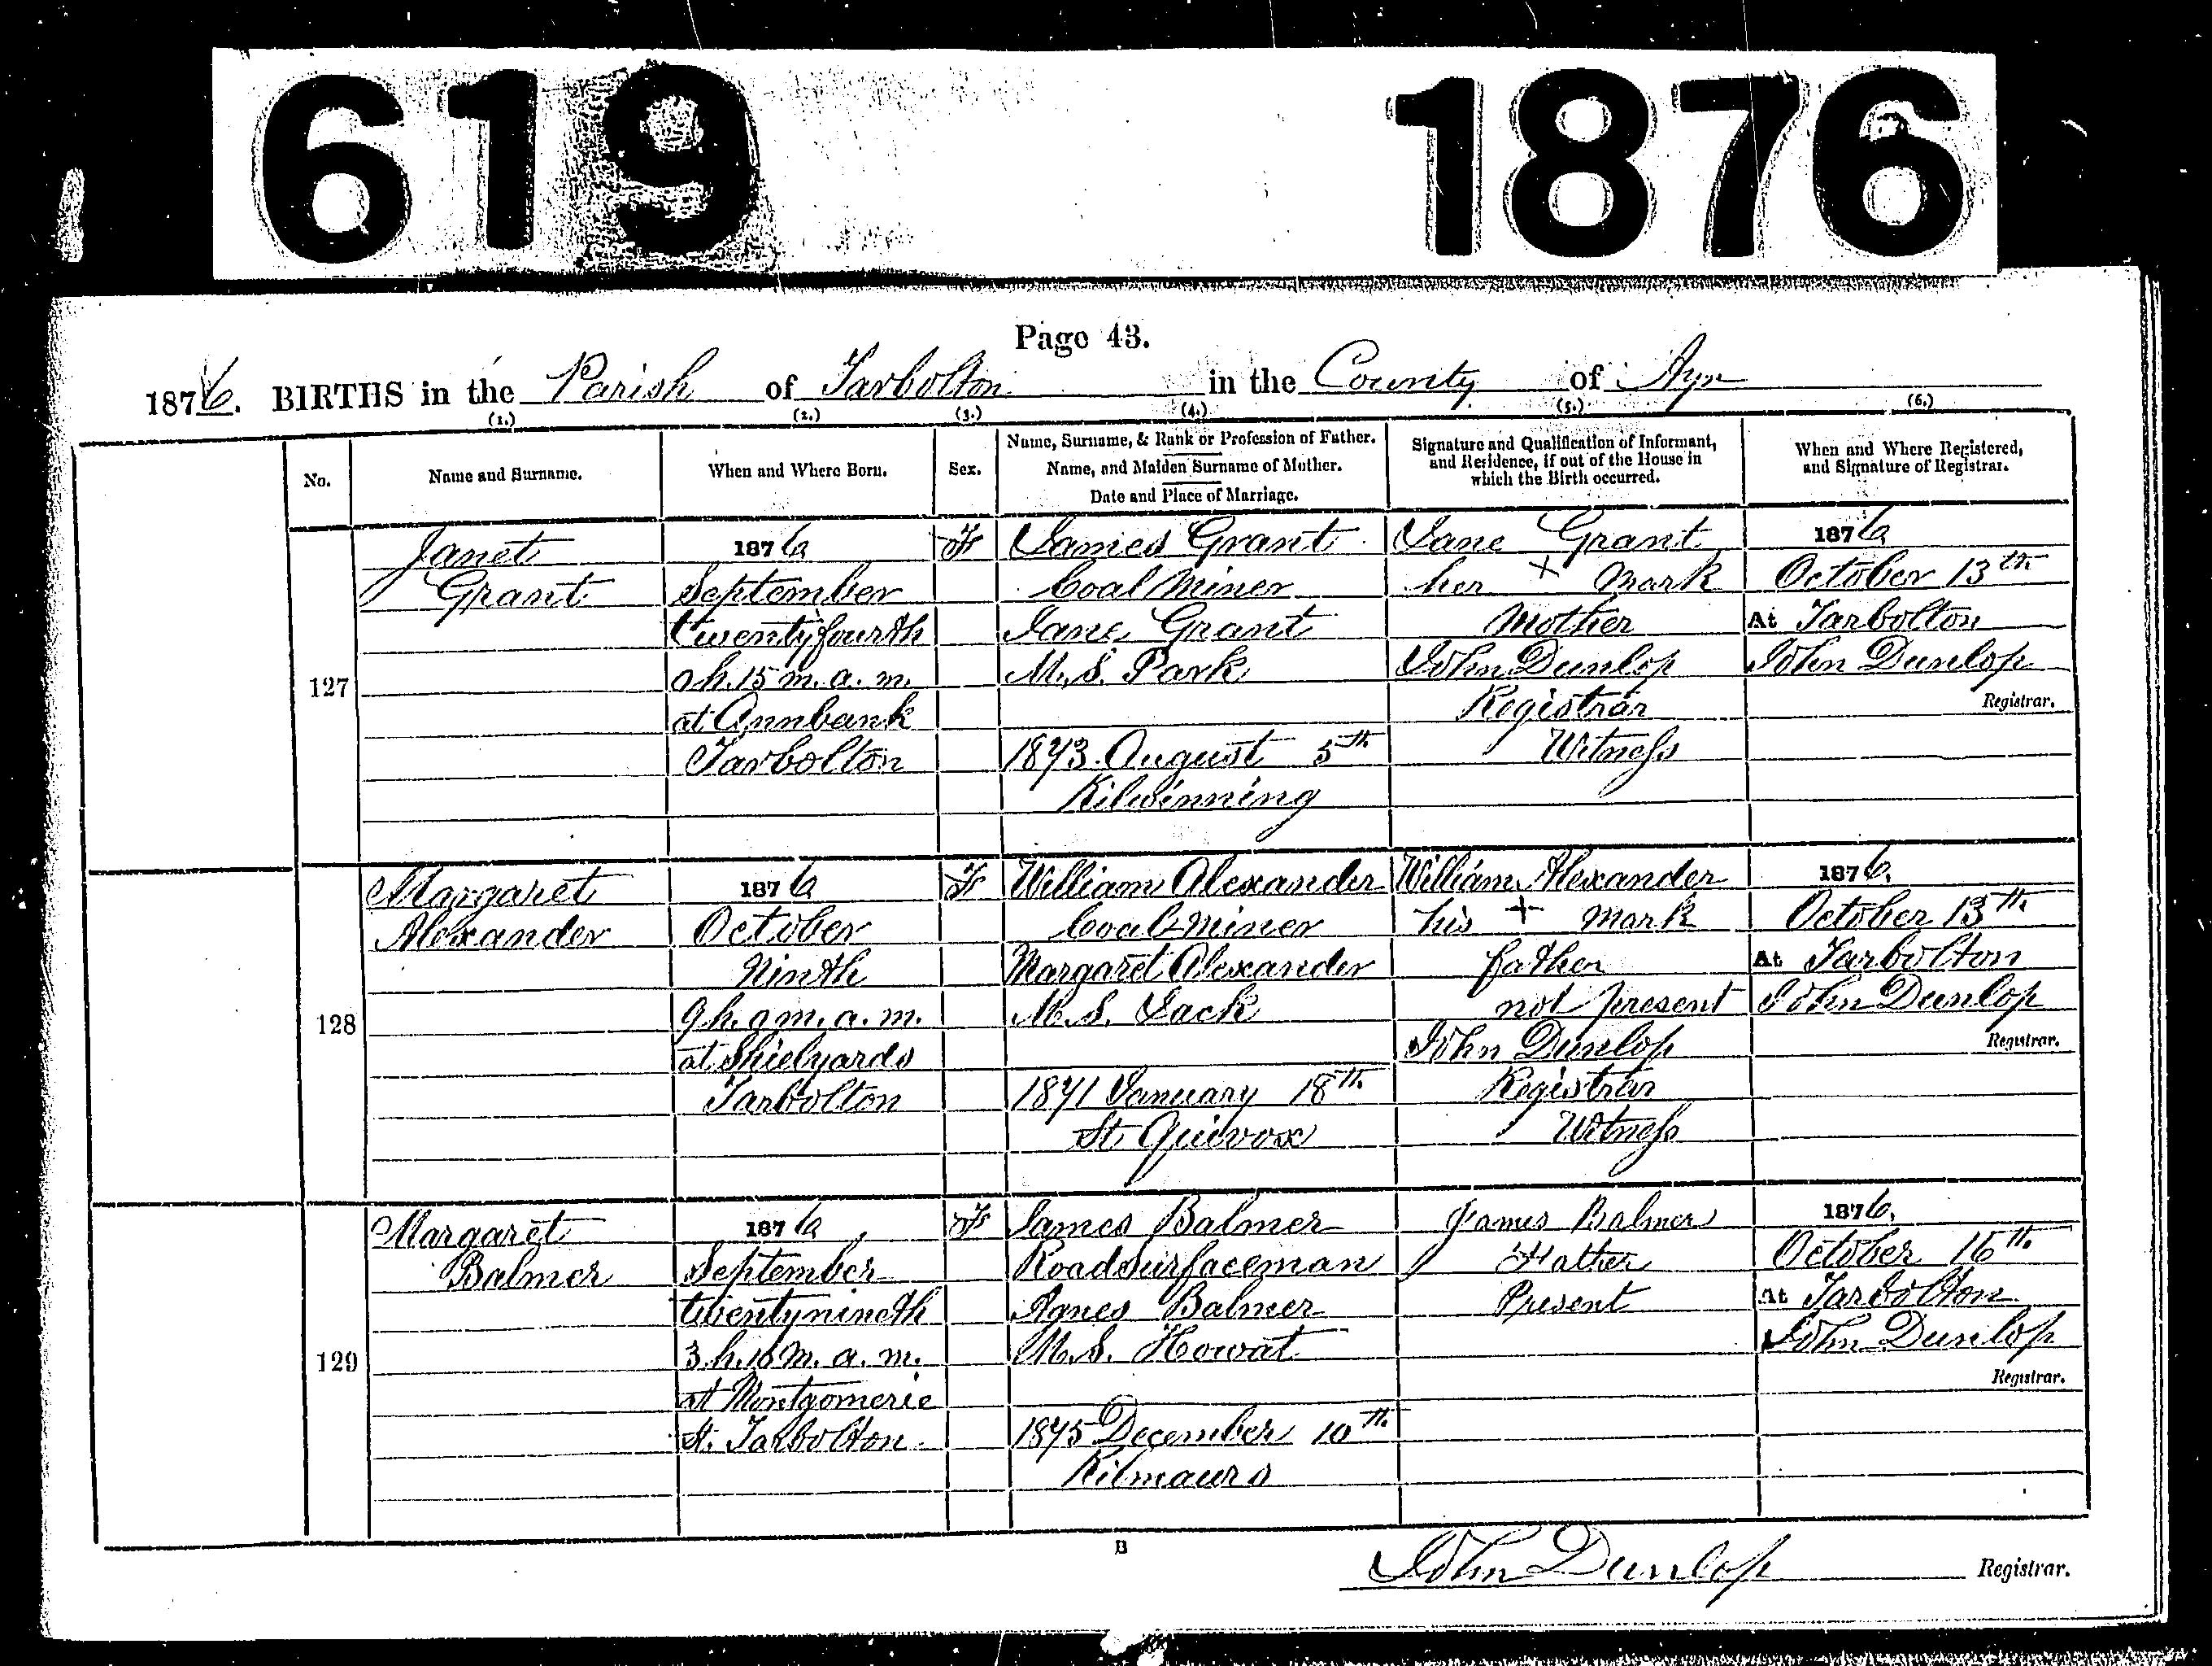 619 1876
Page 43.
1876. BIRTHS in the Parish of Tarbolton in the County of Ayr
(1.) (2.) (3.) (4.) (5.) (6.)
No.
Name and Surname.
When and Where Born.
Sex.
Name, Surname, & Rank or Profession of Father.
Name, and Maiden Surname of Mother.
Date and Place of Marriage.
Signature and Qualification of Informant,
and Residence, if out of the House in
which the Birth occurred.
When and Where Registered,
and Signature of Registrar.
127
Janet
Grant
1876
September
twentyfourth
0 h. 15 m. a. m.
at Annbank
Tarbolton
F
James Grant
Coal Miner
Jane Grant
M.S. Park
1873 August 5th
Kilwinning
Jane Grant
her X mark
Mother
John Dunlop
Registrar
Witness
1876
October 13th
At Tarbolton
John Dunlop
Registrar.
128
Margaret
Alexander
1876
October
Ninth
9 h. 0 m. a. m.
at Shielyards
Tarbolton
F
William Alexander
Coal Miner
Margaret Alexander
M.S. Jack
1871 January 18th
St Quivox
William Alexander
his + mark
father
not present
John Dunlop
Registrar
Witness
1876.
October 13th
At Tarbolton
John Dunlop
Registrar.
129
Margaret
Balmer
1876
September
twentynineth
3 h. m. a. m.
at Montgomerie
St. Tarbolton
F
James Balmer
Roadsurfaceman
Agnes Balmer
M.S. Howat
1875 December 10th
Kilmaurs
James Balmer
Father
Present
1876.
October 16th
At Tarbolton
John Dunlop
Registrar.
B
John Dunlop Registrar.